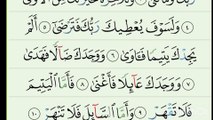 وَلَسَوْفَ يُعْطِيكَ رَبُّكَ فَتَرْضَىٰٓ ٥ أَلَمْ
يَجِدْكَ يَتِيمًا فَـَٔاوَىٰ ٦ وَوَجَدَكَ ضَآلًّا فَهَدَىٰ
٧ وَوَجَدَكَ عَآئِلًا فَأَغْنَىٰ ٨ فَأَمَّا ٱلْيَتِيمَ
فَلَا تَقْهَرْ ٩ وَأَمَّا ٱلسَّآئِلَ فَلَا تَنْهَرْ ١٠